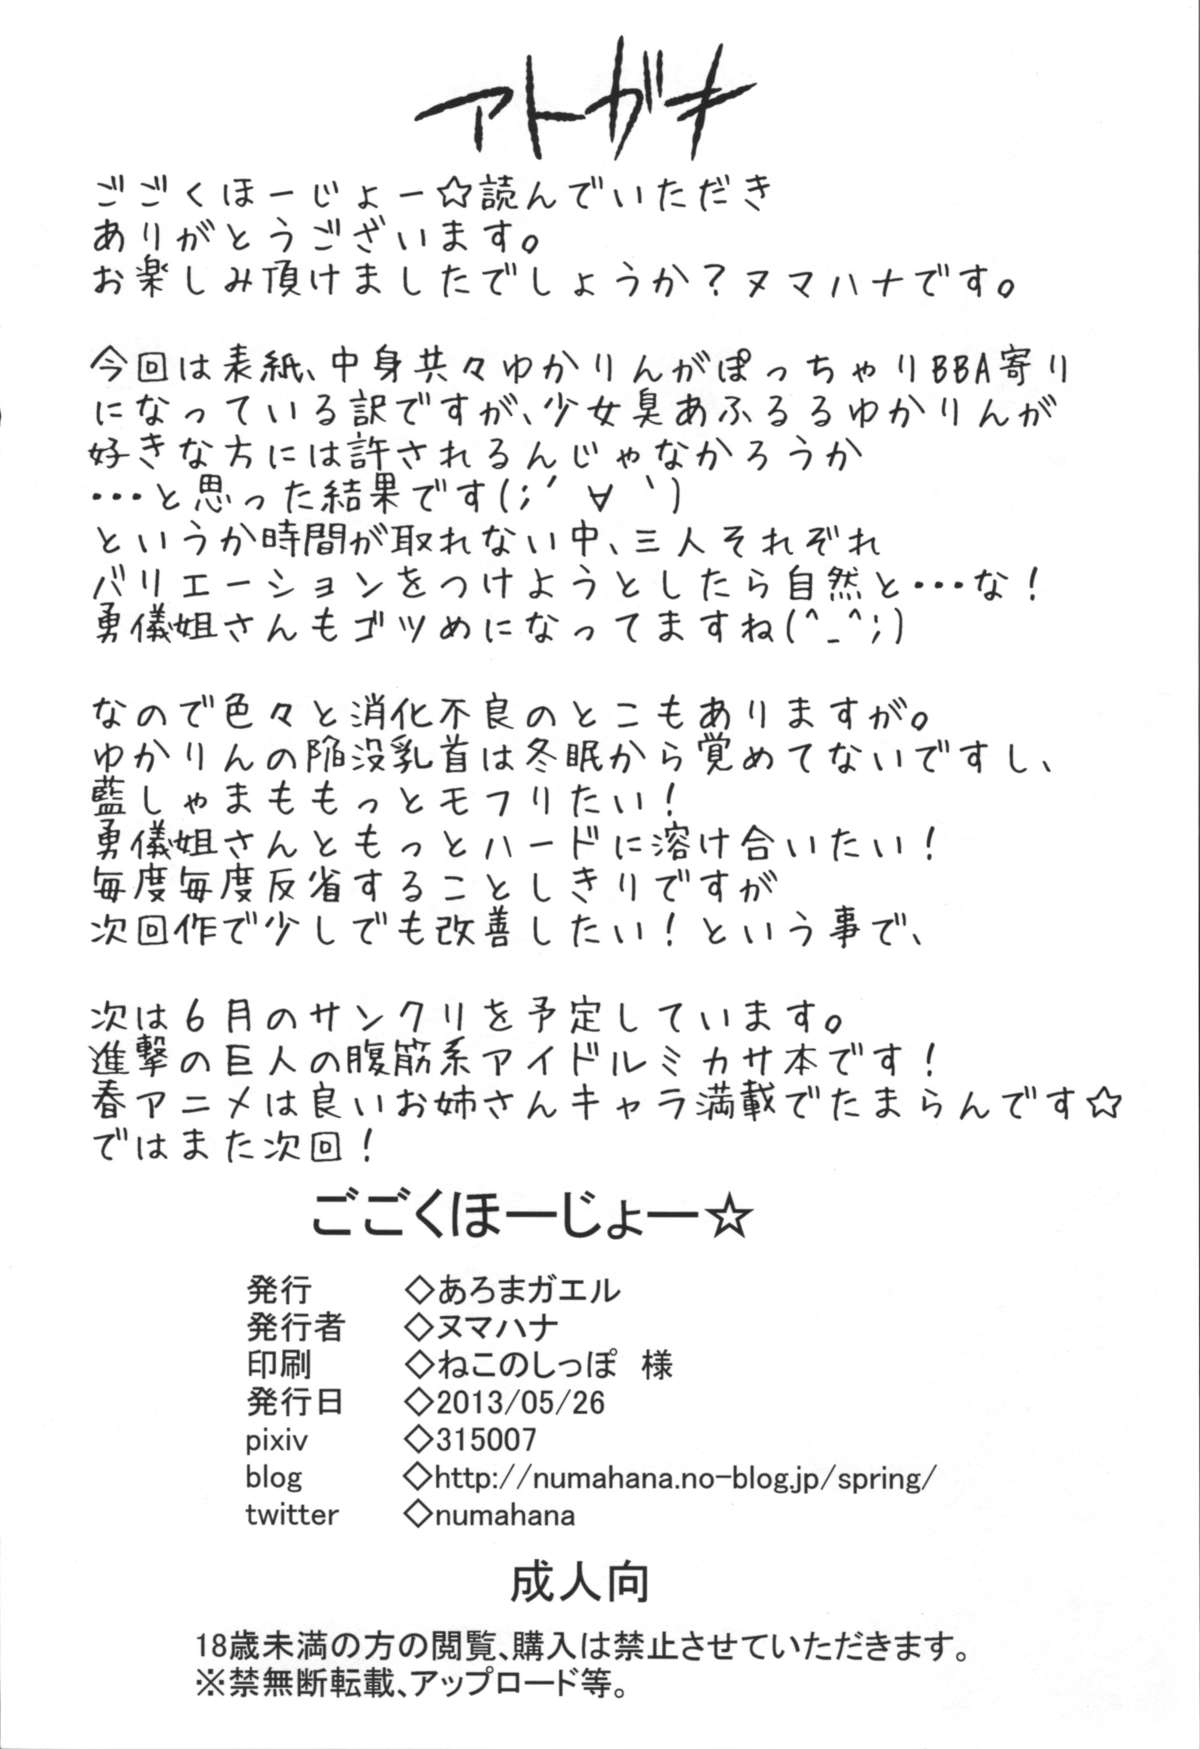 アトガキ
ごごくほーじょー☆読んでいただき
ありがとうございます。
お楽しみ頂けましたでしょうか？ヌマハナです。
今回は表紙、中身共々ゆかりんがぽっちゃりBBA寄り
になっている訳ですが、少女臭あふるるゆかりんが
好きな方には許されるんじゃなかろうか
・・・と思った結果です(;´∀｀)
というか時間が取れない中、三人それぞれ
バリエーションをつけようとしたら自然と・・・な！
勇儀姐さんもゴツめになってますね(^_^;)
なので色々と消化不良のとこもありますが。
ゆかりんの陥没乳首は冬眠から覚めてないですし、
藍しゃまももっとモフりたい！
勇儀姐さんともっとハードに溶け合いたい！
毎度毎度反省することしきりですが
次回作で少しでも改善したい！という事で、
次は6月のサンクリを予定しています。
進撃の巨人の腹筋系アイドルミカサ本です！
春アニメは良いお姉さんキャラ満載でたまらんです☆
ではまた次回！
ごごくほーじょー☆
発行 ◇あろまガエル
発行者 ◇ヌマハナ
印刷 ◇ねこのしっぽ 様
発行日 ◇2013/05/26
pixiv ◇315007
blog ◇http://numahana.no-blog.jp/spring/
twitter ◇numahana
成人向
18歳未満の方の閲覧、購入は禁止させていただきます。
※禁無断転載、アップロード等。